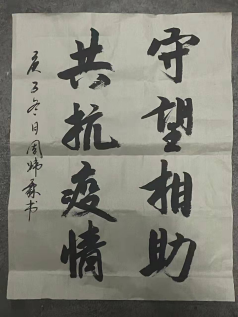 守望相助
共抗疫情
庚子冬日周炜森书